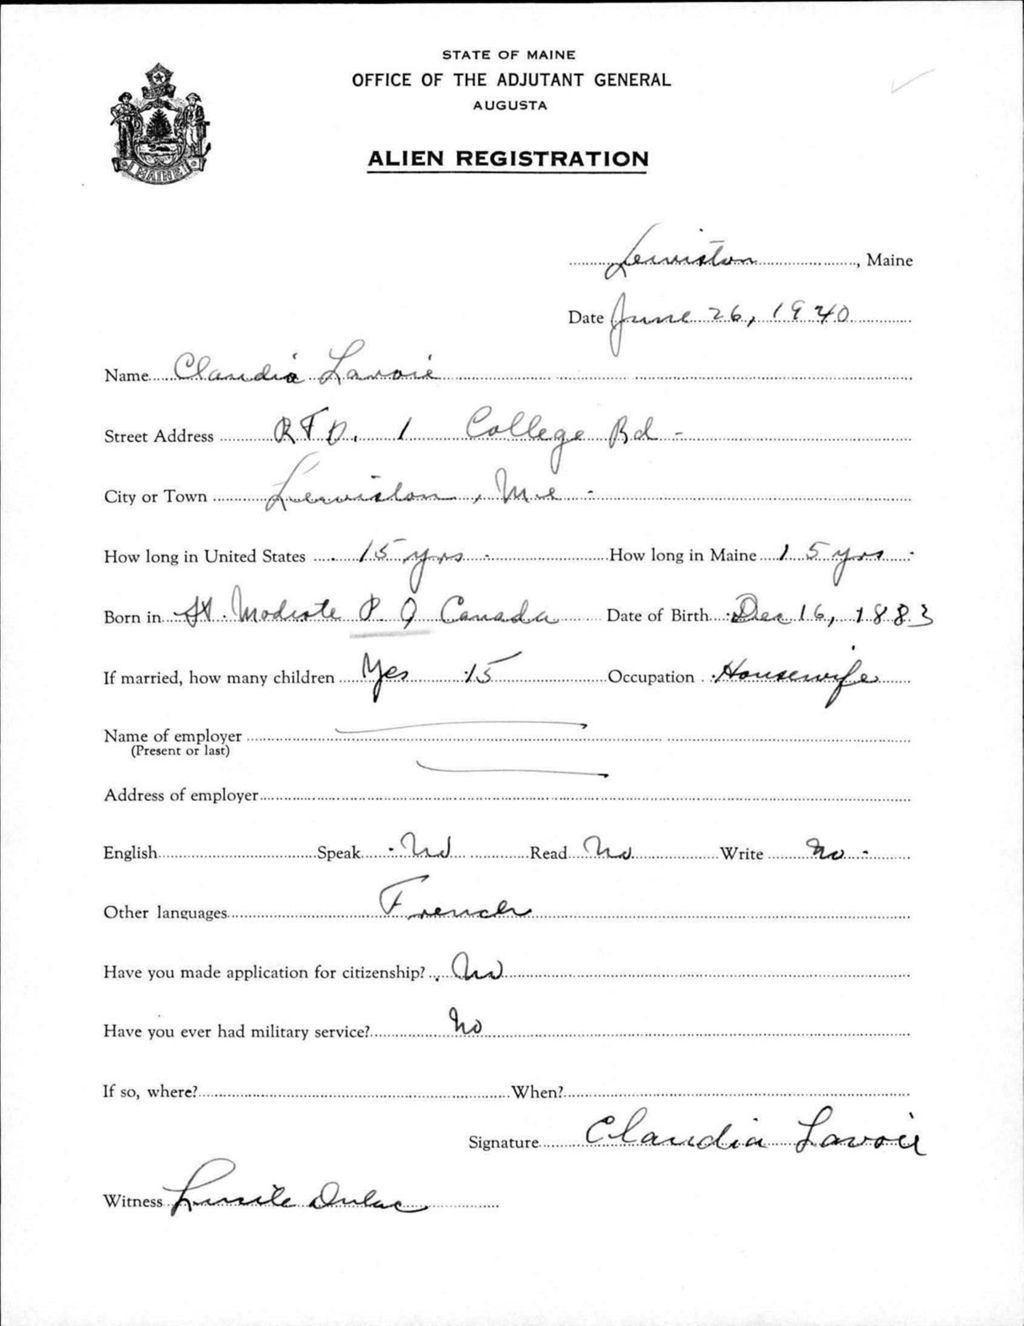 STATE OF MAINE
OFFICE OF THE ADJUTANT GENERAL
AUGUSTA
ALIEN REGISTRATION
MAINE
Lewiston, Maine
Date June 26, 1940
Name Claudia Lavoie
Street Address RFD. 1 College Rd -
City or Town Lewiston, Me -
How long in United States 15 yrs - How long in Maine 15 yrs -
Born in St. Modeste P. Q Canada Date of Birth Dec 16, 1883
If married, how many children Yes 15 Occupation Housewife
Name of employer
(Present or last)
Address of employer
English Speak No Read No Write No -
Other languages French
Have you made application for citizenship? No
Have you ever had military service? No
If so, where? When?
Signature Claudia Lavoie
Witness Lucile Dulac